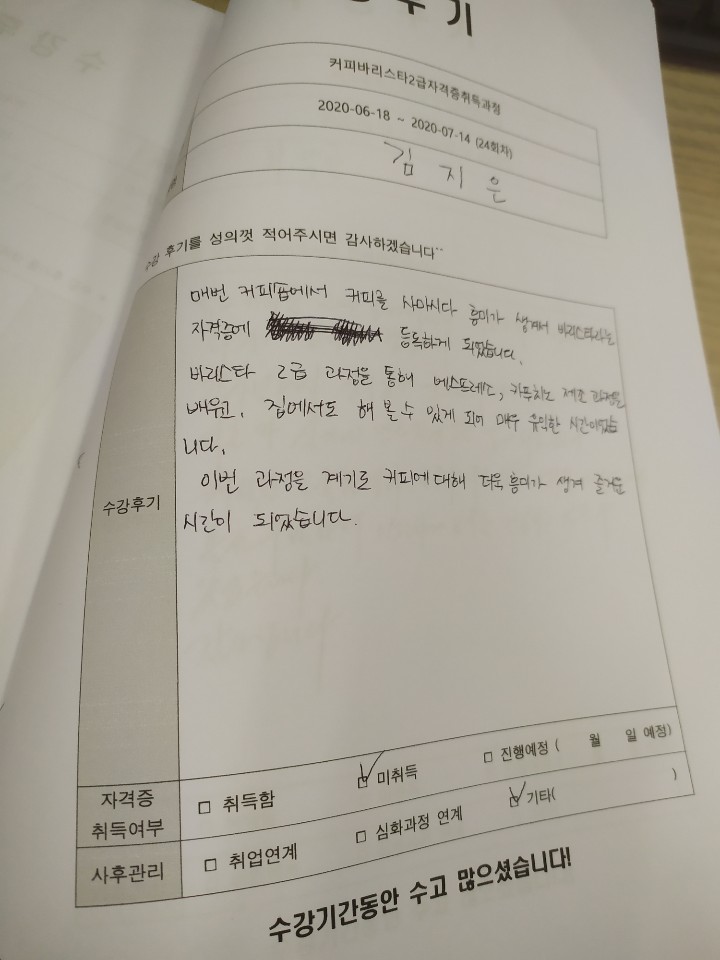 후기
커피바리스타2급자격증취득과정
2020-06-18 ~ 2020-07-14 (24회차)
김지은
수강 후기를 성의껏 적어주시면 감사하겠습니다¨
수강후기
매번 커피숍에서 커피를 사마시다 흥미가 생겨서 바리스타라는
자격증에 등록하게 되었습니다.
바리스타 2급 과정을 통해 에스프레소, 카푸치노 제조 과정을
배우고, 집에서도 해 볼 수 있게 되어 매우 유익한 시간이었습
니다.
이번 과정을 계기로 커피에 대해 더욱 흥미가 생겨 즐거운
시간이 되었습니다.
자격증
취득여부
□ 취득함 ☑ 미취득 □ 진행예정 ( 월 일 예정)
사후관리
□ 취업연계 □ 심화과정 연계 ☑ 기타( )
수강기간동안 수고 많으셨습니다!